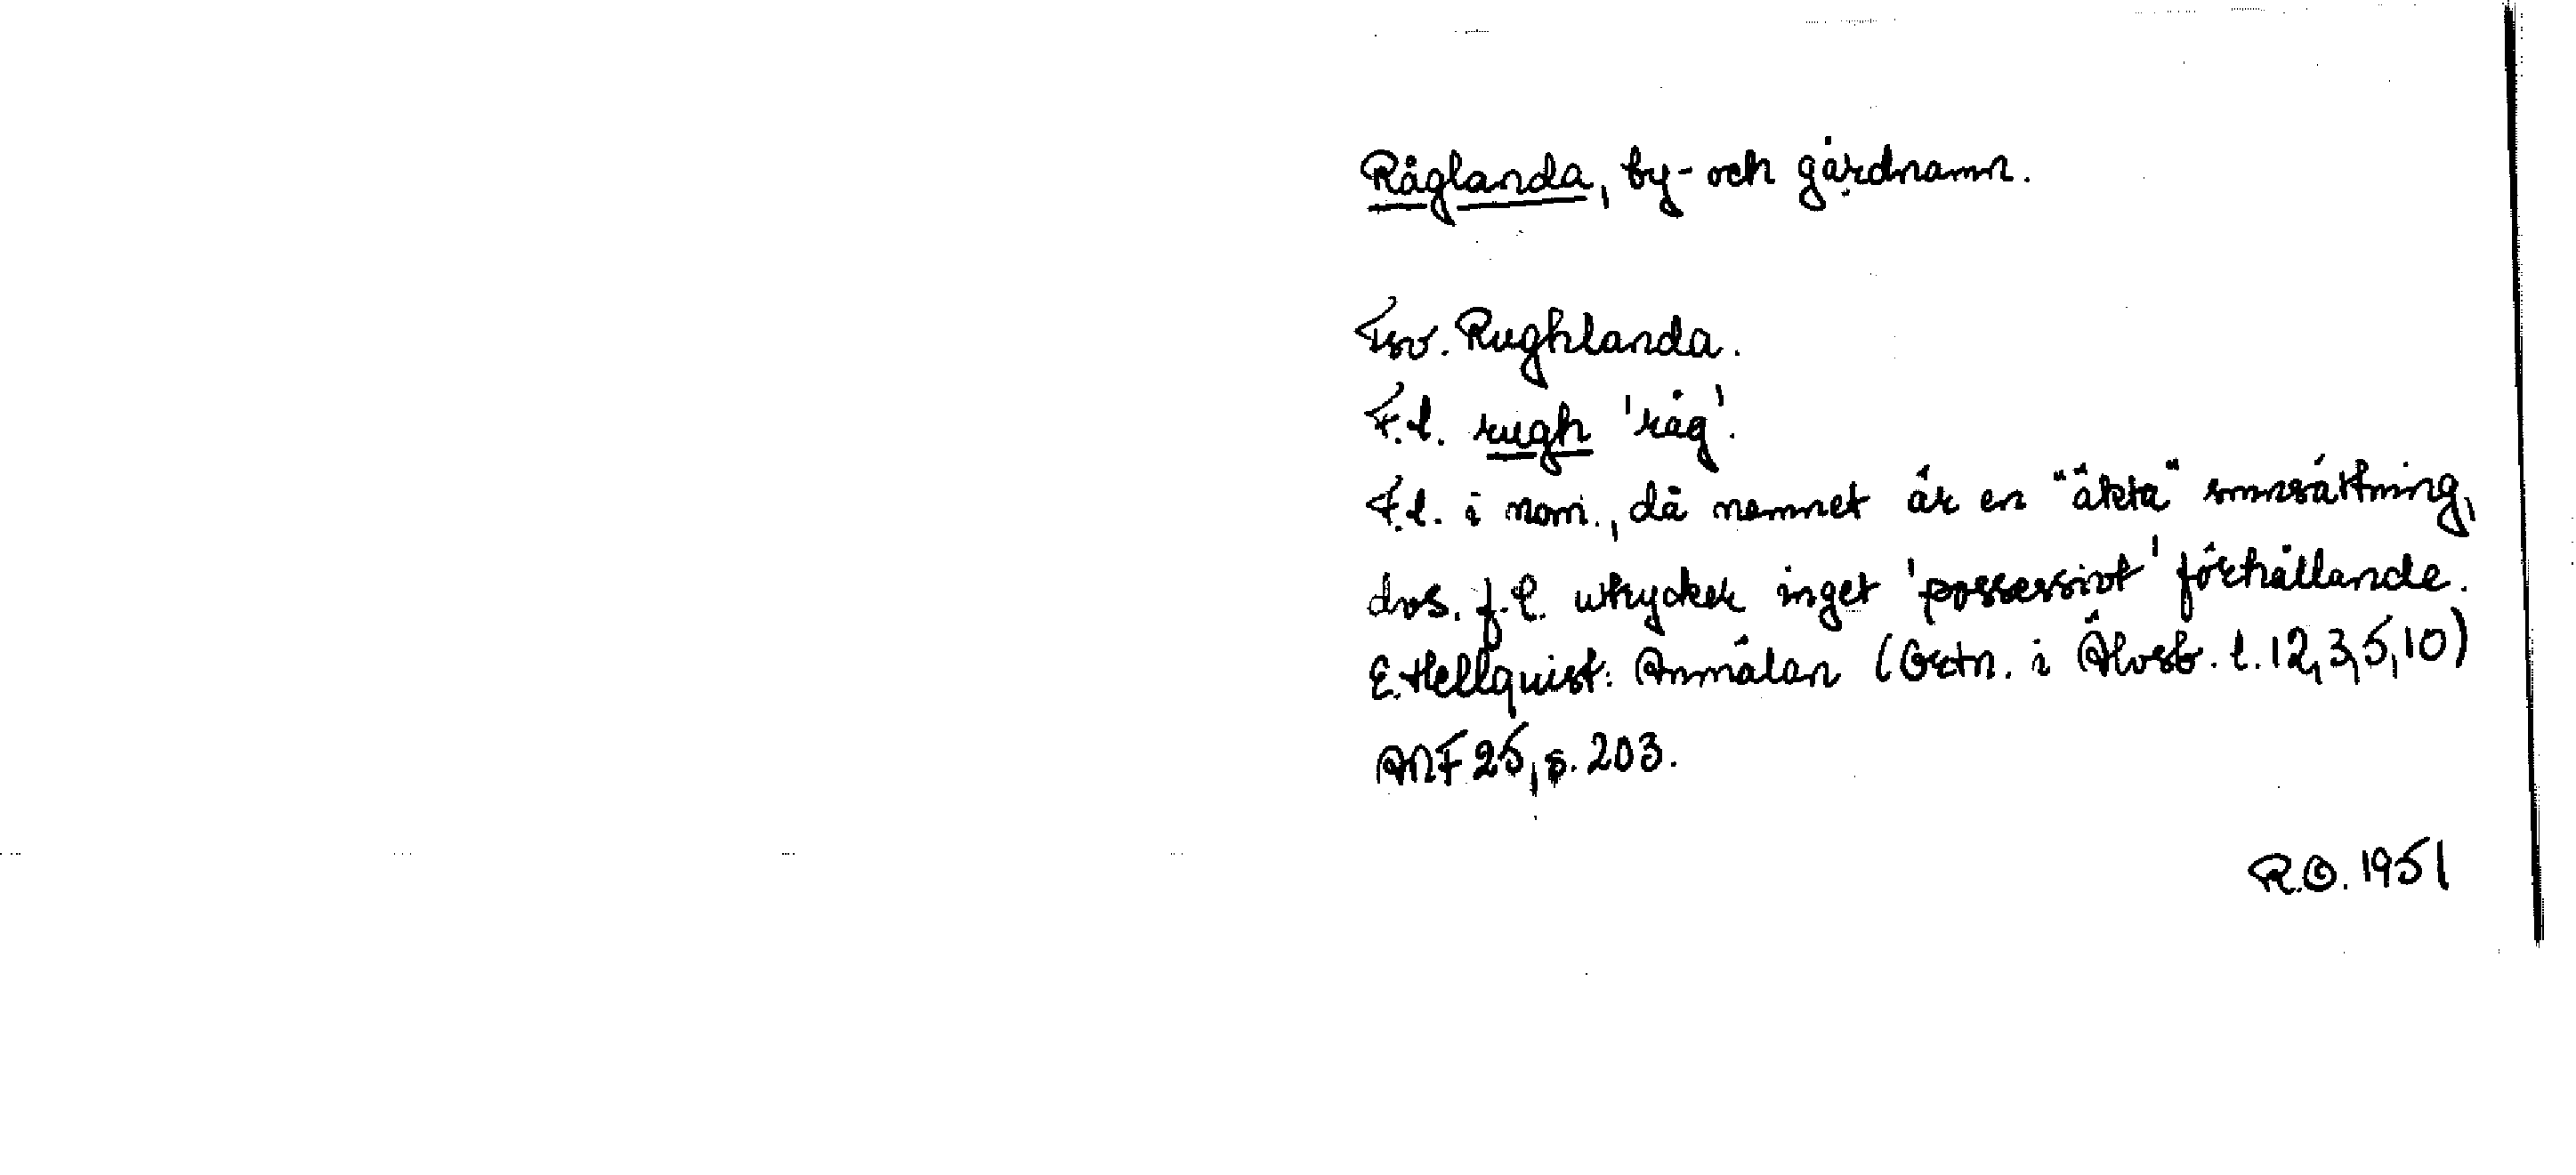 Råglanda, by- och gårdnamn.
Fsv. Rughlanda.
F.l. rugh 'råg'.
F.l. i nom., då namnet är en "äkta" smnsättning,
dvs. f.l. uttrycker inget 'possessivt' förhållande.
E. Hellquist: Anmälan (Ortn. i Älvsb. l. 12, 3, 5, 10)
ANF 25, s. 203.
R.O. 1951